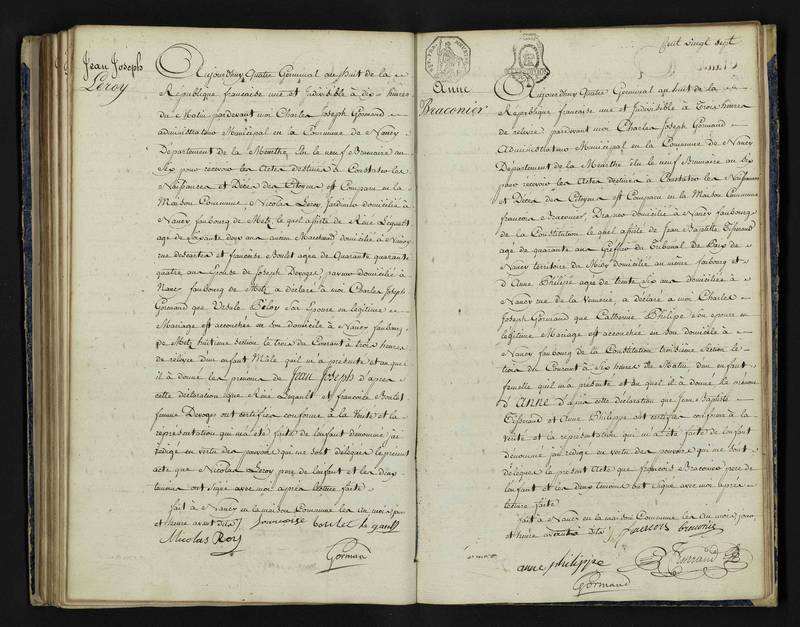 Jean Joseph
Leroy
Aujourd'huy Quatre Germinal an huit de la
République française une et Indivisible à dix heures
du Matin pardevant moi Charles Joseph Gormand
administrateur Municipal en la Commune de Nancy
Département de la Meurthe, Elu le neuf Brumaire an
Six pour recevoir les Actes destinés à Constater les
Naissances et Décès des Citoyens est Comparu en la
Maison Commune Nicolas Leroy Jardinier domicilié à
Nancy faubourg de Metz lequel assisté de René Lequeult
agé de soixante douze ans ancien Marchand domicilié à Nancy
rue descartes et francoise Boulet agée de Quarante quarante
quatre ans Epouse de Joseph Devoges domicilié à
Nancy faubourg de Metz a déclaré à moi Charles Joseph
Gormand que Son Epouse en légitime
Mariage est accouchée en son domicile à Nancy faubourg
de Metz huitieme Section le trois du Courant à trois heures
de relevée d'un enfant Mâle qu'il m'a présenté et auquel
il à donné les prénoms de Jean Joseph d'après
cette déclaration que René Lequeult et francoise Boulet
femme Devoges ont certifiée conforme à la Vérité et la
représentation qui m'a été faite de l'enfant dénommé j'ai
rédigé en vertu des pouvoirs qui me sont délégués le présent
acte que Nicolas Leroy pere de l'enfant et les deux
temoins ont Signé avec moi après lecture faite
fait à Nancy en la maison Commune les an mois jour
et heure avant dits francoise boulet
Nicolas Roy
Gormand
feuil vingt sept
Anne
Braconier
Aujourd'huy Quatre Germinal an huit de la
République française une et Indivisible à Trois heures
de relevée pardevant moi Charles Joseph Gormand
Administrateur Municipal en la Commune de Nancy
Département de la Meurthe élu le neuf Brumaire an six
pour recevoir les Actes destinés à Constater les Naissances
et Décès des Citoyens est Comparu en la Maison Commune
francois Braconier, domicilié à Nancy faubourg
de la Constitution lequel assisté de Jean Baptiste
agé de quarante ans Greffier du Tribunal de Paix de
Nancy territoire du Midy domicilié au même faubourg et
d'Anne Philipe agée de trente six ans domiciliée à
Nancy rue de la a déclaré a moi Charles
Joseph Gormand que Catherine Philipe son épouse en
légitime Mariage est accouchée en son domicile à
Nancy faubourg de la Constitution troisième Section le
trois du Courant à Six heures du Matin d'un enfant
femelle qu'il m'a présenté et auquel il à donné le prénom
d'anne D'après cette déclaration que Jean Baptiste
et Anne Philippe ont certifiée conforme à la
vérité et la représentation qui m'a été faite de l'enfant
dénommé j'ai rédigé en vertu des pouvoirs qui me sont
délégués le présent Acte que francois Braconier pere de
l'enfant et les deux temoins ont Signé avec moi après
lecture faite
fait à Nancy en la maison Commune les an mois jour
et heure avant dits francois braconier
anne philippe
Gormand